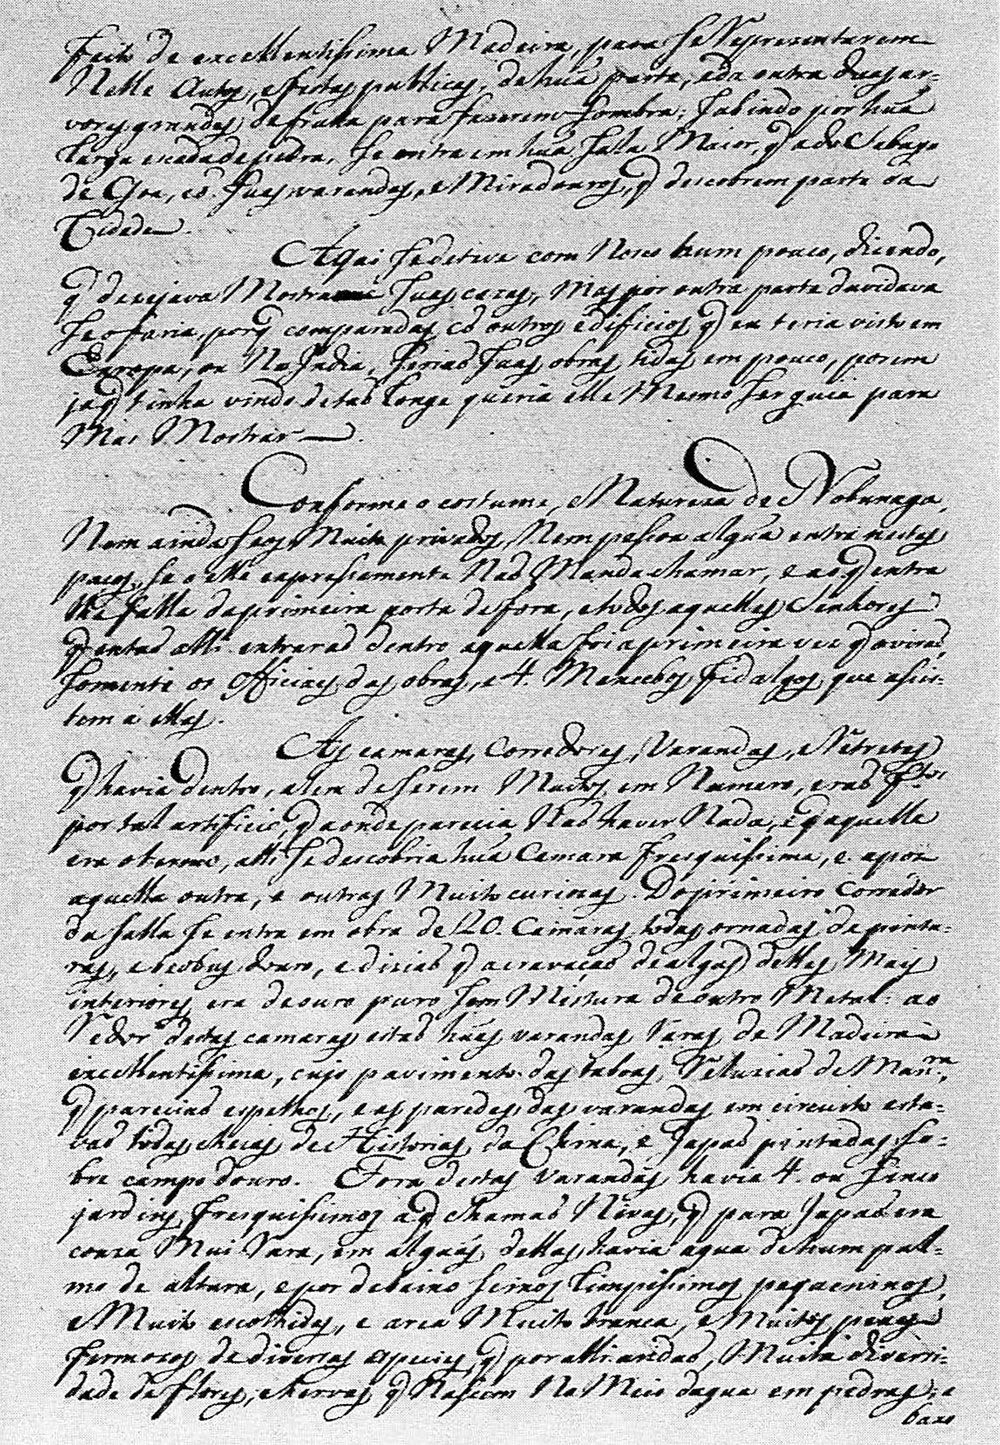 feito de excellentissima Madeira, para se Representarem
Nelle Autos, e festas publicas, de hũa parte, e da outra duas ar-
vores grandes de fruita para fazerem sombra; subindo por hũa
larga escada de pedra, se entra em hũa salla Maior, q̃ a do Sabayo
de Goa, cõ suas varandas, e Miradouros, q̃ descobrem parte da
Cidade.
Aqui se deteve com Nosco hum pouco, dizendo,
q̃ dezejava Mostrar suas cazas, Mas por outra parte duvidava
se o faria, porq̃ comparadas cõ outros edificios q̃ eu teria visto em
Europa, ou Na India, seriaõ suas obras tidas em pouco, porem
ja q̃ tinha vindo de taõ longe queria elle Mesmo ser guia para
Mas Mostrar.
Conforme o costume, e Natureza de Nobunaga,
Nem ainda seos Muito privados, Nem pessoa algũa entra nestes
paços, se o elle expressamente Naõ Manda chamar, e ao q̃ entra
lhe falla da primeira porta de fora, e todos aquelles Senhores
q̃ entaõ alli entraraõ dentro aquella foi a primeira vez q̃ o viraõ,
somente os Officiaes das obras, e 4. Mancebos fidalgos, que assis-
tem a ellas.
As camaras, Corredores, Varandas, e Retretes
q̃ havia dentro, alem de serem Muitos em Numero, eraõ f.tos
por tal artificio, q̃ aonde parecia Naõ haver Nada, e q̃ aquelle
era o termo, alli se descobria hũa Camara fresquissima, e apoz
aquella outra, e outras Muito curiozas. Do primeiro Corredor
da salla se entra em obra de 20. Camaras, todas ornadas de pintu-
ras, e douro, e diziaõ q̃ a cravaçaõ de algũas dellas Mais
interiores, era de ouro puro sem Mistura de outro Metal: ao
Redor destas camaras estaõ hũas varandas Raras de Madeira
excellentissima, cujo pavimento das taboas Reluziaõ de Man.ra,
q̃ pareciaõ espelhos, e as paredes das varandas em circuito esta-
vaõ todas cheias de Historias da China, e Japaõ pintadas so-
bre campo douro. Fora destas Varandas havia 4. ou sinco
jardins fresquissimos a q̃ chamaõ Nivas, q̃ para Japaõ era
couza Mui Rara, em algũs dellas havia agua de hum pal-
mo de altura, e por debaixo seixos limpissimos pequeninos,
e Muito escolhidos, e area Muito branca, e Muitos peixes
fermozos de diversas especies, q̃ por alli andaõ, Muita diversi-
dade de flores, e hervas q̃ Nascem No Meio dagua em pedras, e
baxo